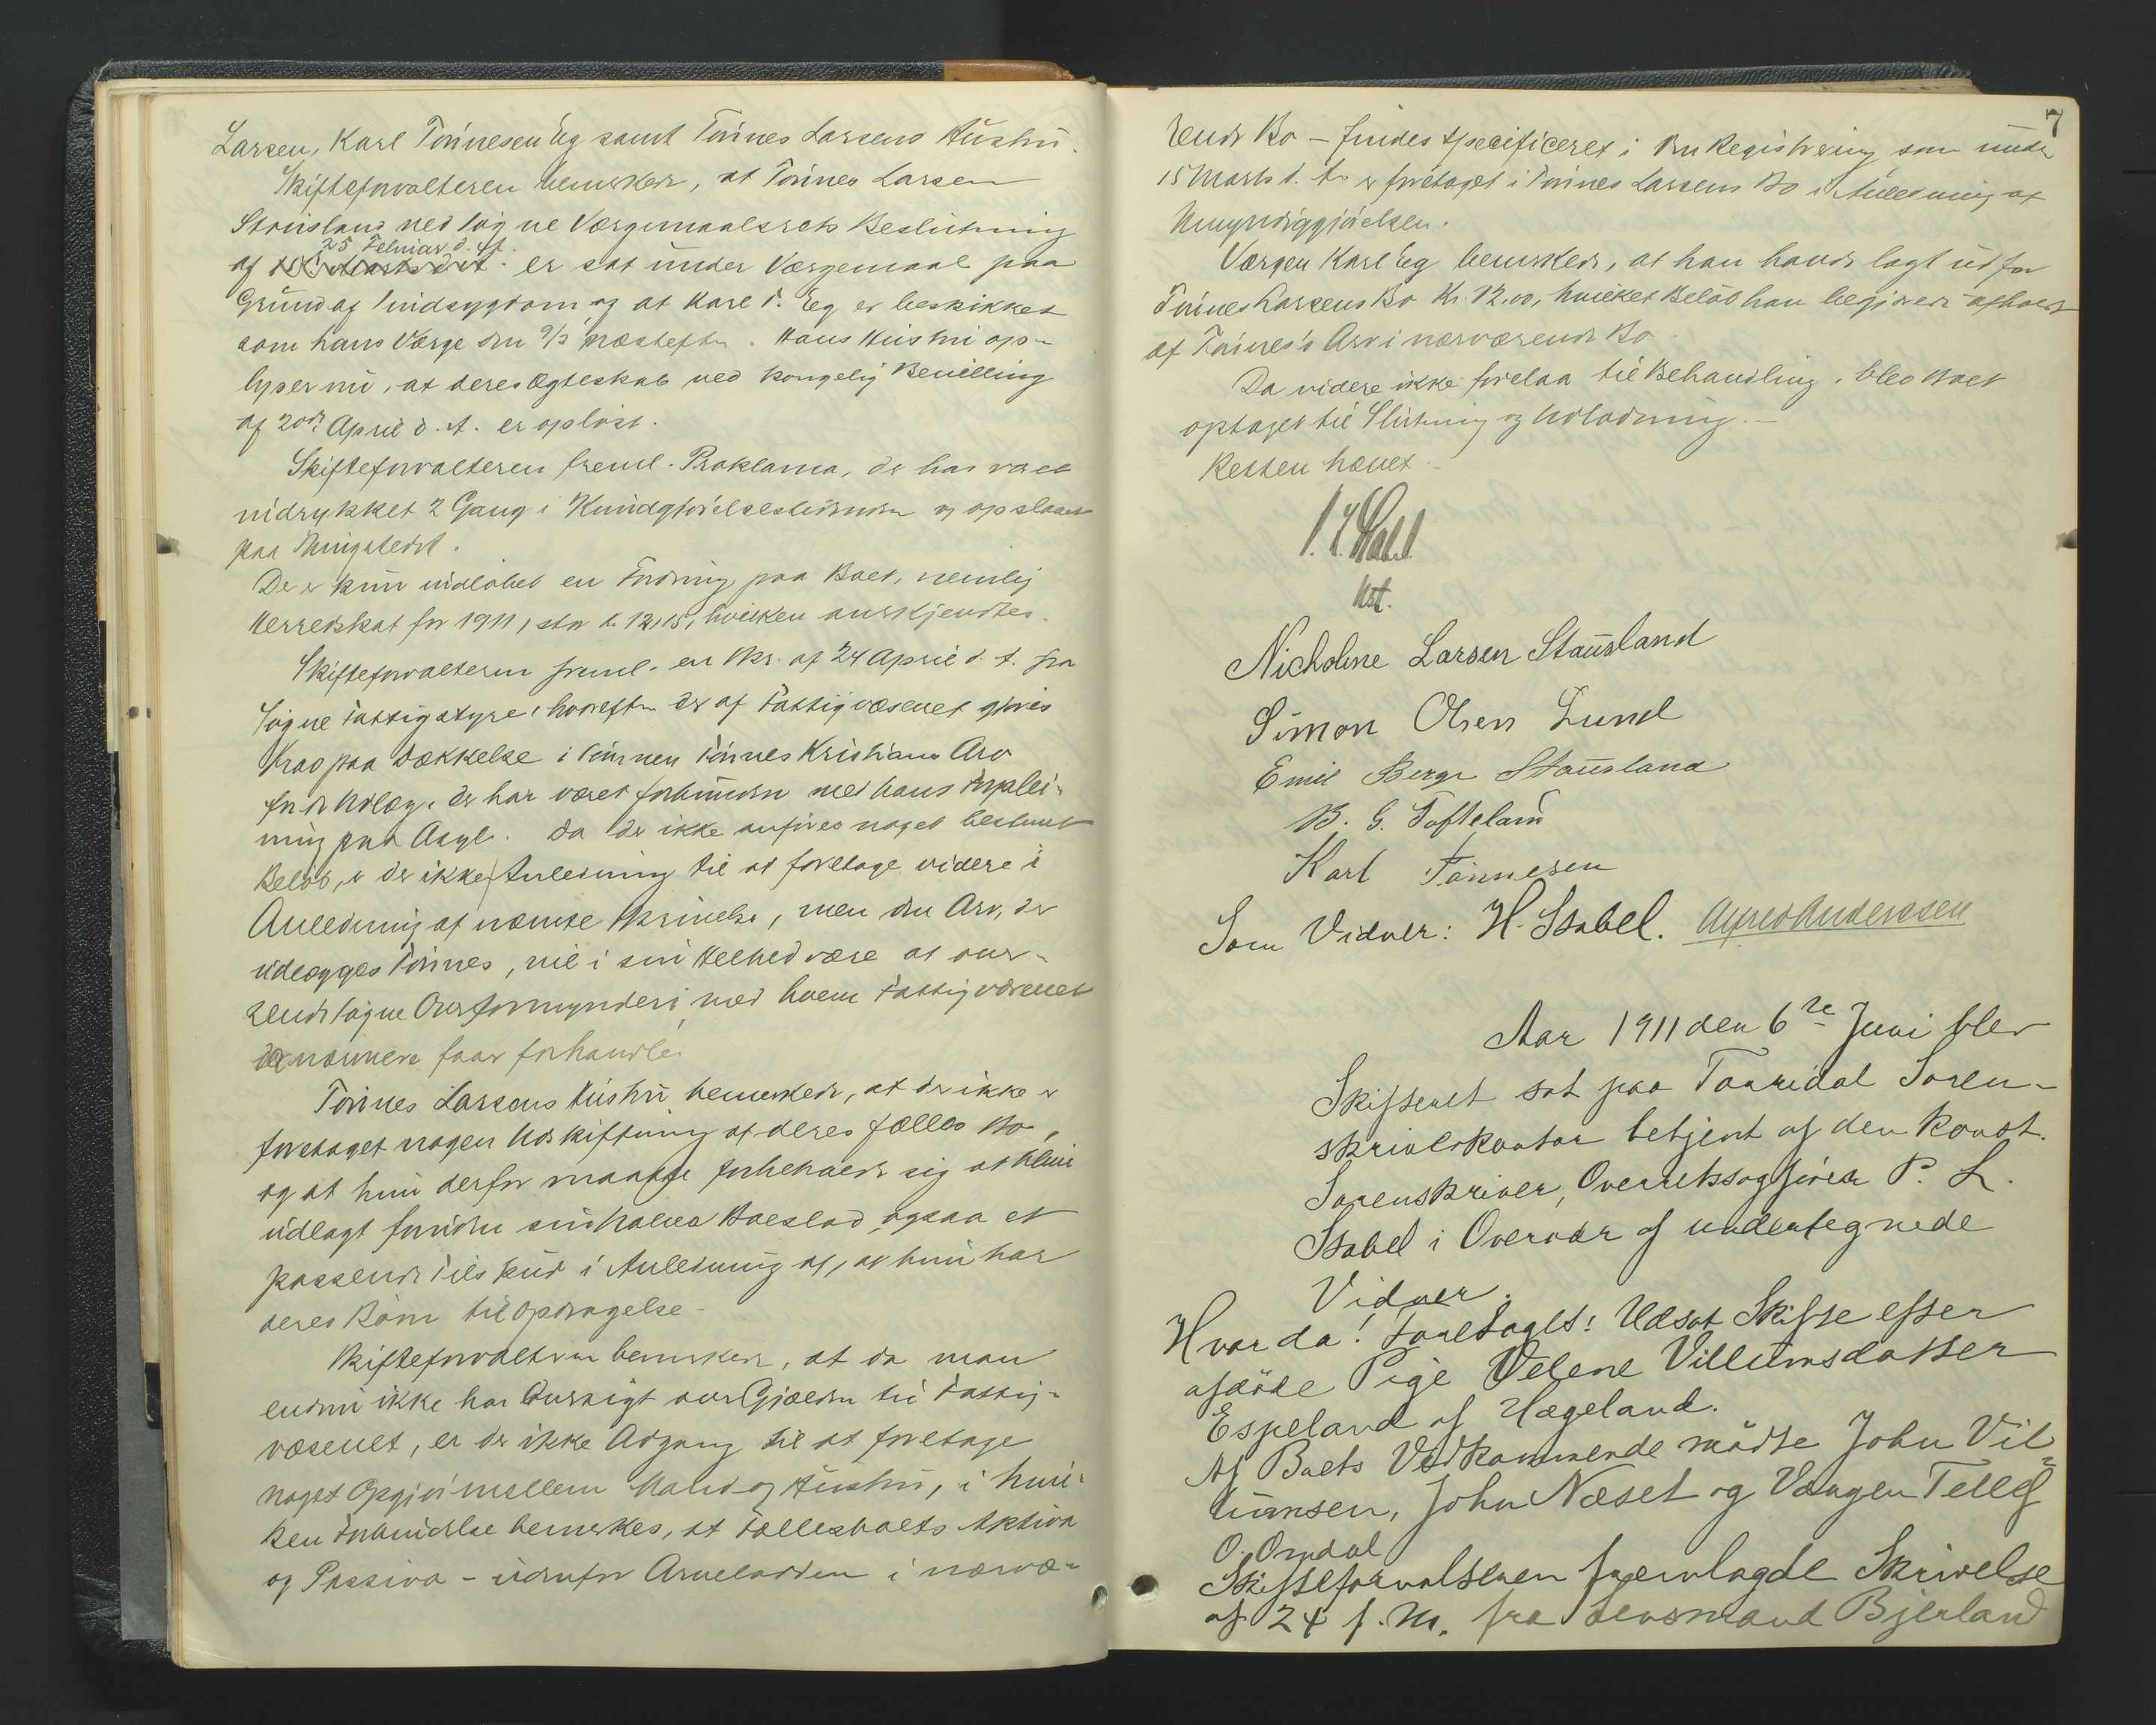 Larsen, Karl Tönnesen Eg samt Tönnes Larsens Hustru.
Skifteforvalteren bemerker, at Tönnes Larsen
Stausland ved Søgne Værgemaalsrets Beslutning
25 Februar d. A.
af er sat under Værgemaal paa
Grund af Sindsygdom og at Karl T. Eg er beskikket
som hans Værge den 9/3 næstefter. Hans Hustru op-
lyser nu, at deres Ægteskab ved kongelig Bevilling
af 20de April d. A. er opløst.
Skifteforvalteren freml. Proklama, der har været
indrykket 2 Gang i Kundgjørelsestidenden og opslaaet
paa Thingstedet.
Der er kun indløbet en Fordring paa Boet, nemlig
Herredskat for 1911, stor k. 12,15, hvilken anerkjendtes.
Skifteforvalteren freml. en Skr. af 24 April d. A. fra
Søgne Fattigstyre, hvorefter der af Fattigvæsenet gjøres
Krav paa Dækkelse i Sønnen Tönnes Kristians Arv
for de Udlæg, der har været forbunden med hans Forplei-
ning paa Asyl. Da der ikke anføres noget bestemt
Beløb, er der ikke Anledning til at foretage videre i
Anledning af nævnte Skrivelse, men den Arv, der
udlægges Tönnes, vil i sin Helhed være at over-
sende Søgne Overformynderi, med hvem Fattigvæsenet
da nærmere faar forhandle.
Tönnes Larsens Hustru bemerker, at der ikke er
foretaget nogen Udskiftning af deres fælles Bo,
og at hun derfor maatte forbeholde sig at blive
udlagt foruden sin halve Boeslod ogsaa et
passende Tilskud i Anledning af, at hun har
deres Barn til Opdragelse.
Skifteforvalteren bemerker, at da man
endnu ikke har Oversigt over Gjælden til Fattig-
væsenet, er der ikke Adgang til at foretage
noget Opgjør mellem Mand og Hustru, i hvil-
ken Forbindelse bemerkes, at Fællesboets Aktiva
og Passiva - udenfor Arvelodden i nærvæ-
7
rende Bo - findes specificeret i den Registrering som under
15 Marts d. A. er foretaget i Tönnes Larsens Bo i Anledning af
Umyndiggjørelsen.
Værgen Karl Eg bemerker, at han havde lagt ud for
Tönnes Larsens Bo Kr. 12.00, hvilket Beløb han begjærer afholdt
af Tönnes's Arv i nærværende Bo.
Da videre ikke forelaa til Behandling, blev Boet
optaget til Slutning og Udlodning. -
Retten hævet. -
kst.
Nicholine Larsen Stausland
Simon Olsen Lund
Emil Berge Stausland
B. G. Tofteland
Karl Tönnesen
Som Vidner: H. Stabel. Alfred Anderssen
Aar 1911 den 6te Juni blev
Skifteret sat paa Torridal Soren-
skriverkontor betjent af den konst.
Sorenskriver, Overretssagfører P. L.
Stabel i Overvær af undertegnede
Vidner.
Hvor da! Foretoges: Udsat Skifte efter
afdöde Pige Velene Villumsdatter
Espeland af Hægeland.
Af Boets Vedkommende mödte John Vil-
lumsen, John Næset og Værgen Tellef
O. Omdal
Skifteforvalteren fremlagde Skrivelse
af 24 f. M. fra Lensmand Bjerland